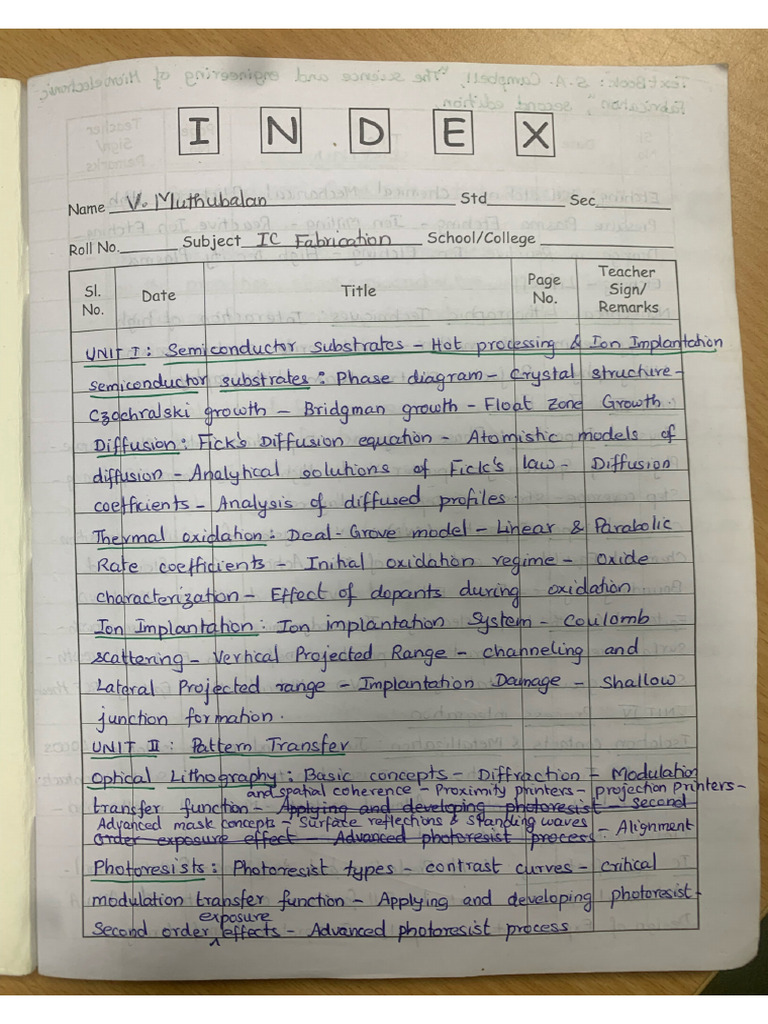 TextBook: S.A. Campbell "The science and engineering of Microelectronic
Fabrication", second edition.
INDEX
Name V. Muthubalan Std Sec
Roll No. Subject IC Fabrication School/College
Sl. No. Date Title Page No. Teacher Sign/ Remarks
UNIT I: Semiconductor substrates - Hot processing & Ion Implantation
Semiconductor substrates: Phase diagram - Crystal structure -
Czochralski growth - Bridgman growth - Float Zone Growth.
Diffusion: Fick's Diffusion equation - Atomistic models of
diffusion - Analytical solutions of Fick's law - Diffusion
coefficients - Analysis of diffused profiles
Thermal oxidation: Deal-Grove model - Linear & Parabolic
Rate coefficients - Initial oxidation regime - Oxide
characterization - Effect of dopants during oxidation
Ion Implantation: Ion implantation System - Coulomb
scattering - Vertical Projected Range - channeling and
Lateral Projected range - Implantation Damage - Shallow
junction formation.
UNIT II: Pattern Transfer
Optical Lithography: Basic concepts - Diffraction - Modulation
and spatial coherence - Proximity printers - projection printers -
transfer function - Applying and developing photoresist - second
Advanced mask concepts - Surface reflections & standing waves
order exposure effect - Advanced photoresist process - Alignment
Photoresists: Photoresist types - contrast curves - critical
modulation transfer function - Applying and developing photoresist -
exposure
Second order effects - Advanced photoresist process